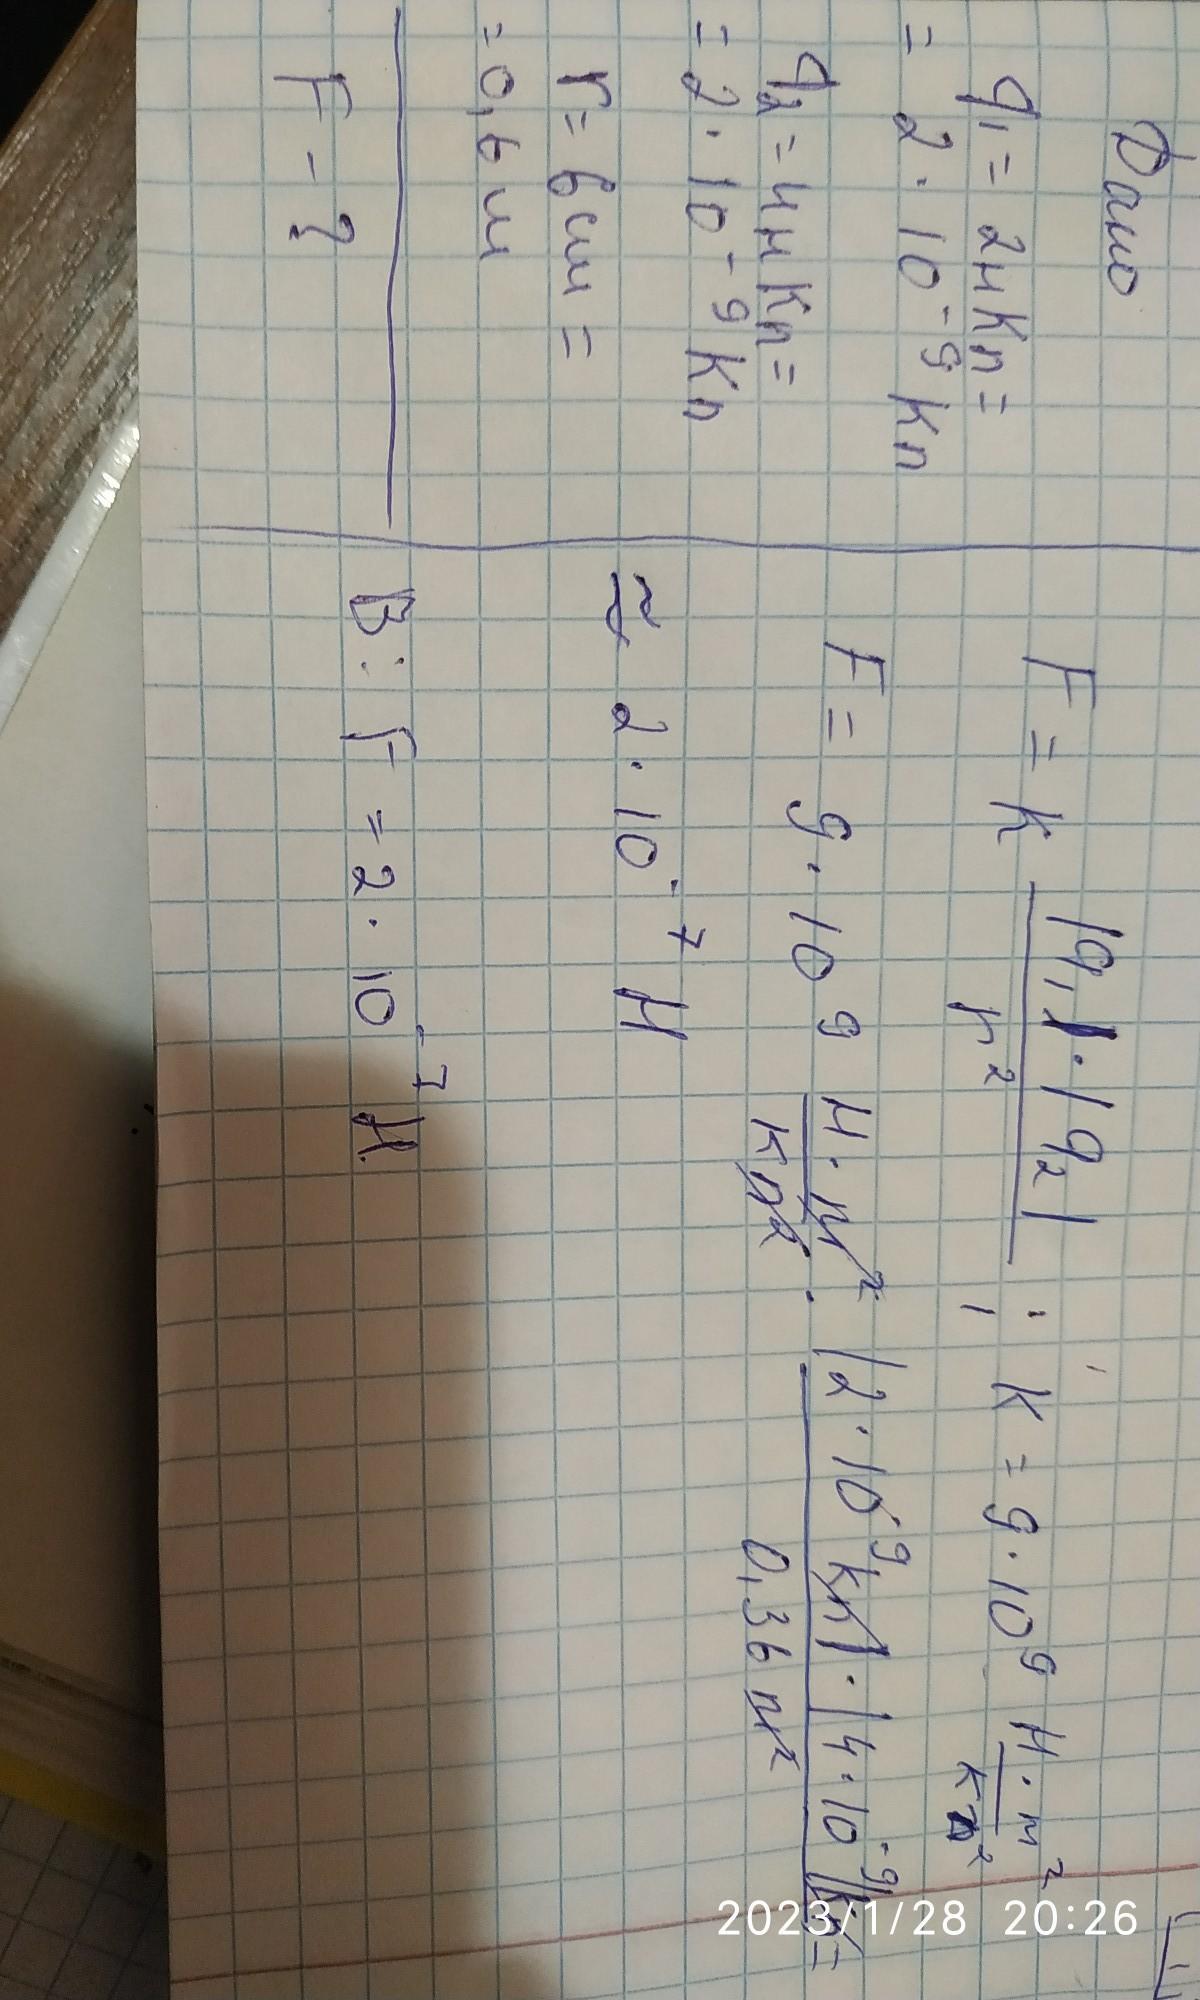 Дано
q₁ = 2нКл =
= 2 · 10⁻⁹ Кл
q₂ = 4нКл =
= 2 · 10⁻⁹ Кл
r = 6 см =
= 0,6 м
F - ?
F = k |q₁| · |q₂| / r² ; k = 9 · 10⁹ Н · м² / Кл²
F = 9 · 10⁹ Н · м² / Кл² · |2 · 10⁻⁹ Кл| · |4 · 10⁻⁹ Кл| / 0,36 м² =
≈ 2 · 10⁻⁷ Н
В: F = 2 · 10⁻⁷ Н.
2023/1/28 20:26